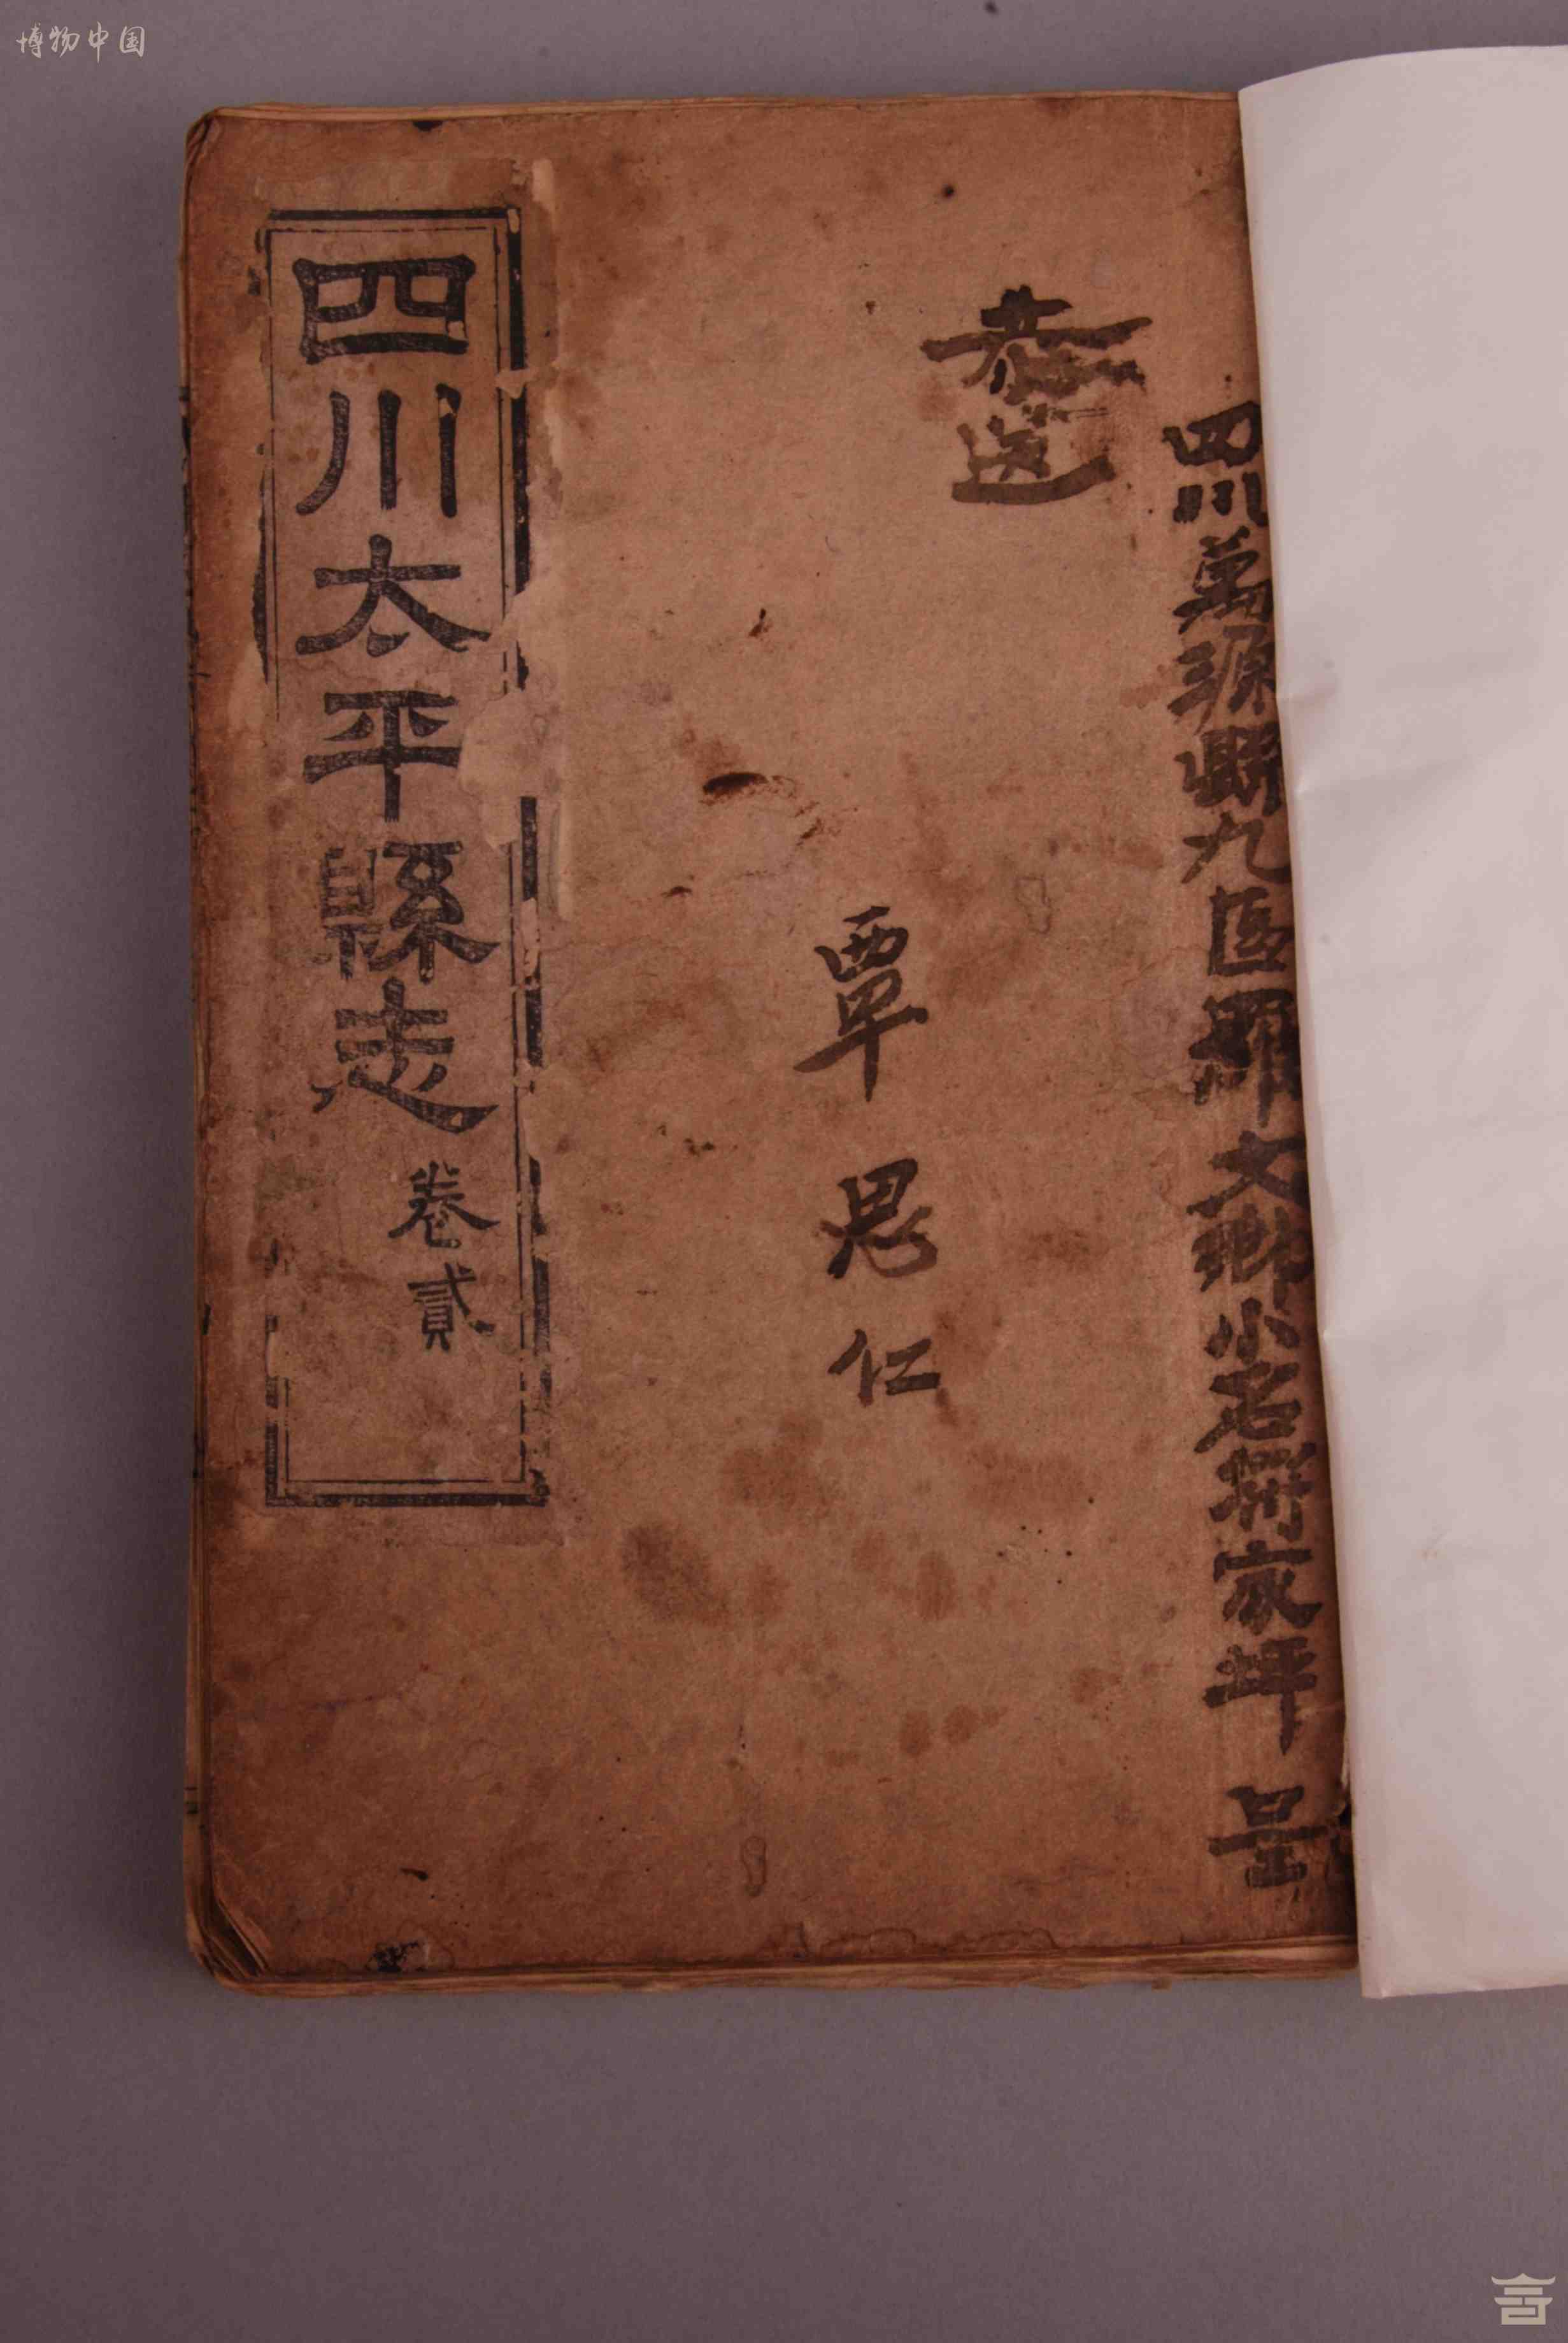 博物中国
四川萬源縣九區羅文鄉小石衕家坪 呈
恭送
覃思仁
四川太平縣志 卷貳